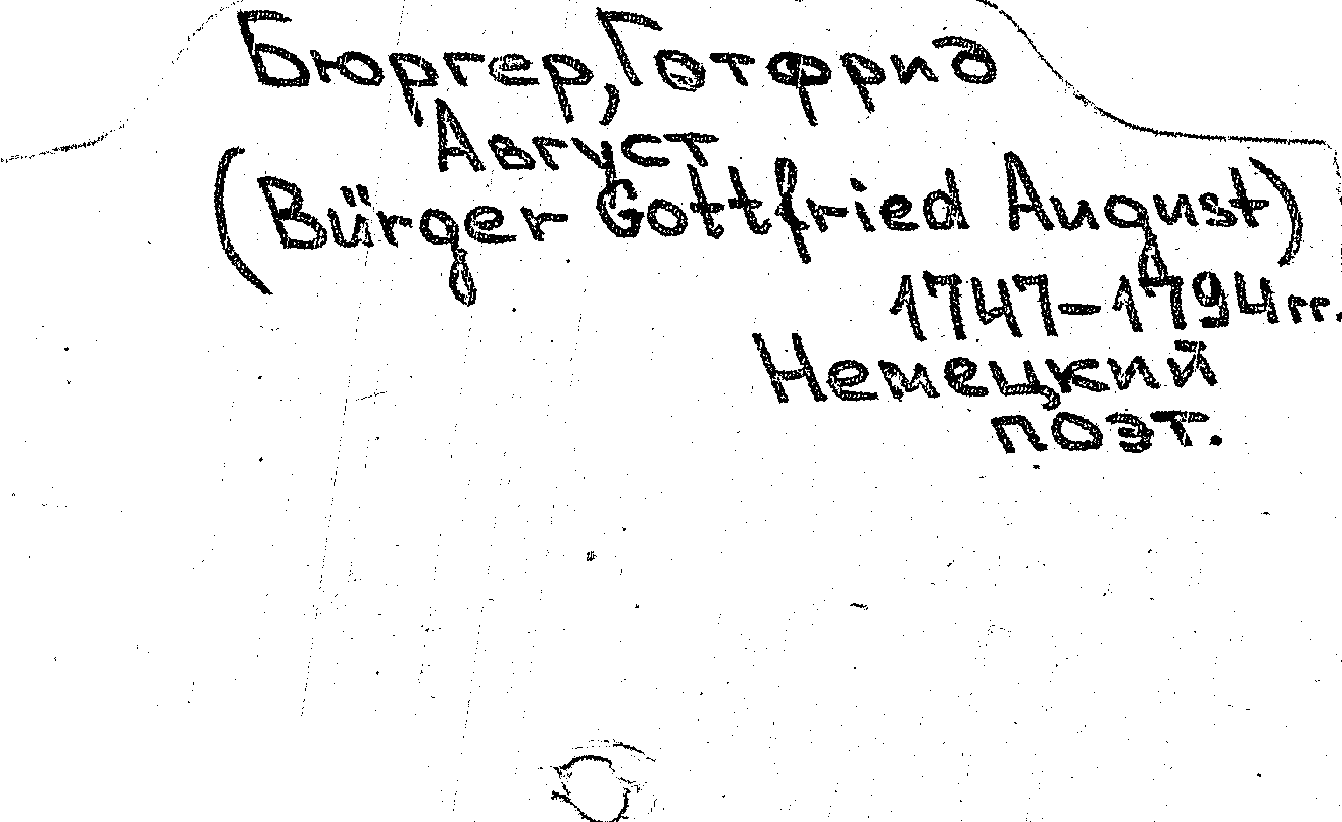 Бюргер, Готфрид
Август
(Bürger Gottfried August)
1747-1794 гг.
Немецкий
поэт.